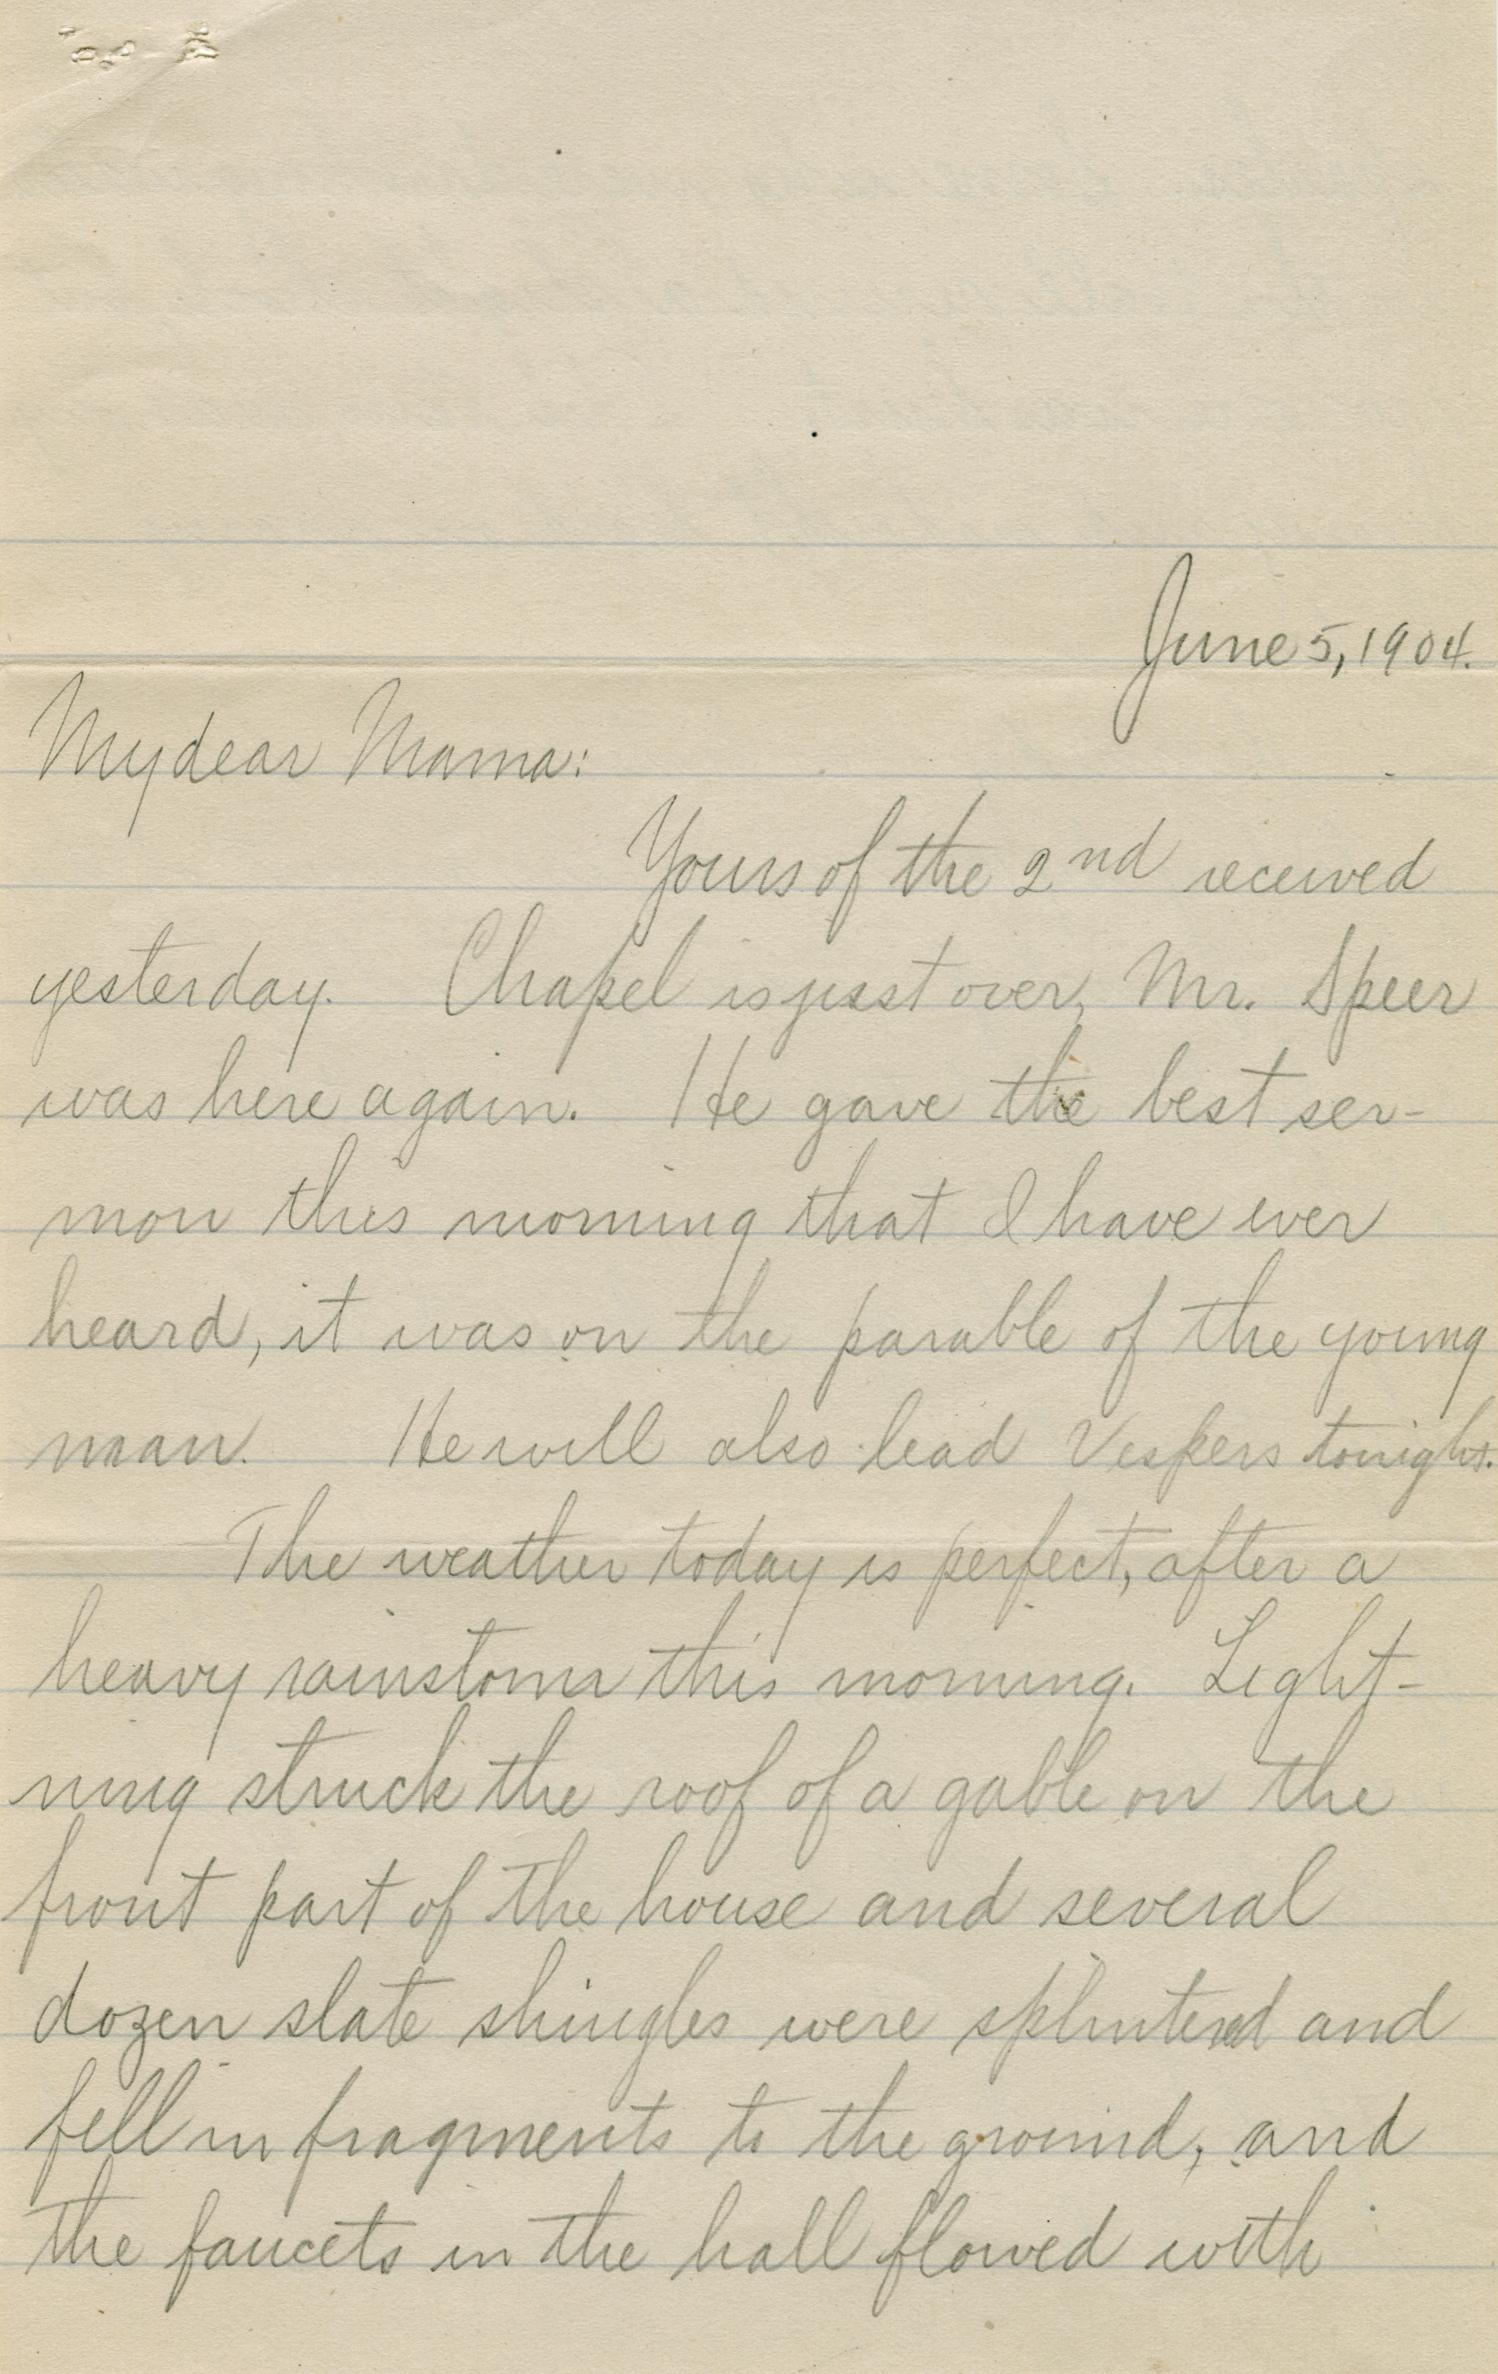 June 5, 1904.
My dear Mama:
Yours of the 2nd received
yesterday. Chapel is just over, Mr. Speer
was here again. He gave the best ser-
mon this morning that I have ever
heard, it was on the parable of the young
man. He will also lead Vespers tonight.
The weather today is perfect, after a
heavy rainstorm this morning. Light-
ning struck the roof of a gable on the
front part of the house and several
dozen slate shingles were splintered and
fell in fragments to the ground, and
the faucets in the hall flowed with